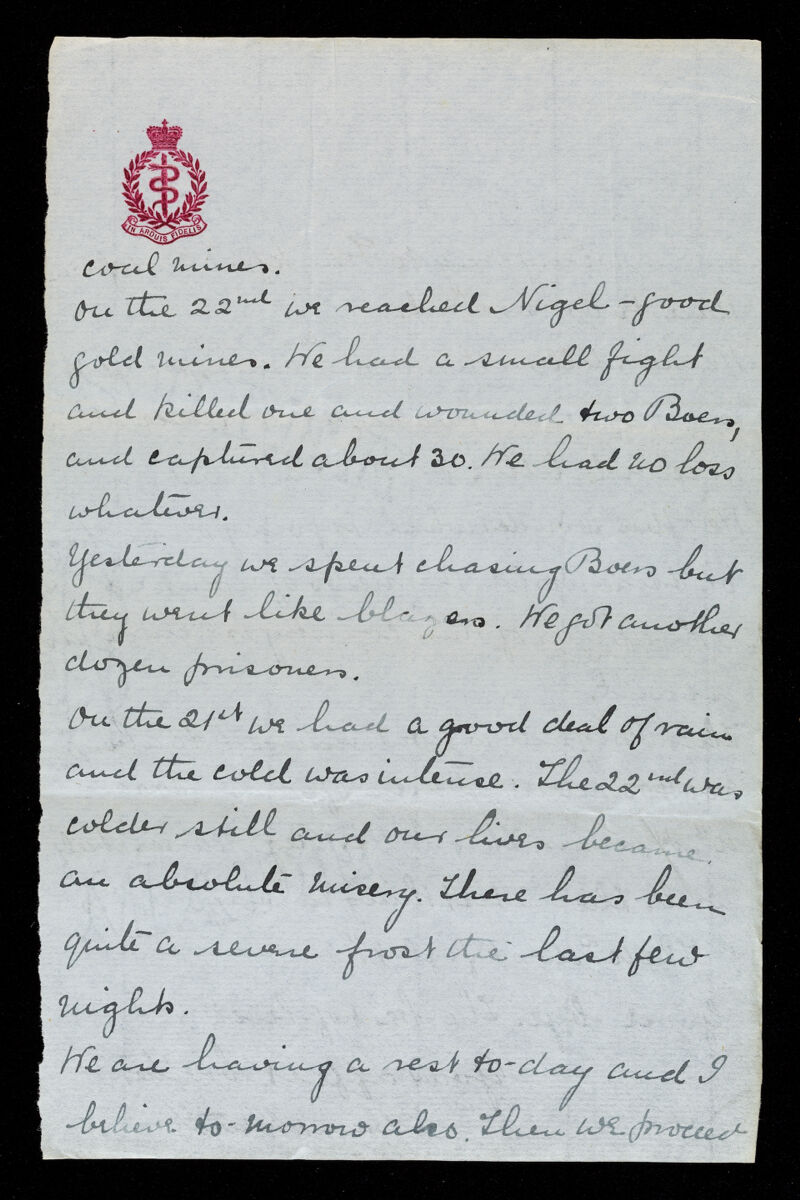 IN ARDUIS FIDELIS
coal mines.
On the 22nd we reached Nigel - good
gold mines. We had a small fight
and killed one and wounded two Boers,
and captured about 30. We had no loss
whatever.
Yesterday we spent chasing Boers but
they went like blazers. We got another
dozen prisoners.
On the 21st we had a good deal of rain
and the cold was intense. The 22nd was
colder still and our lives became
an absolute misery. There has been
quite a severe frost the last few
nights.
We are having a rest to-day and I
believe to-morrow also. Then we proceed